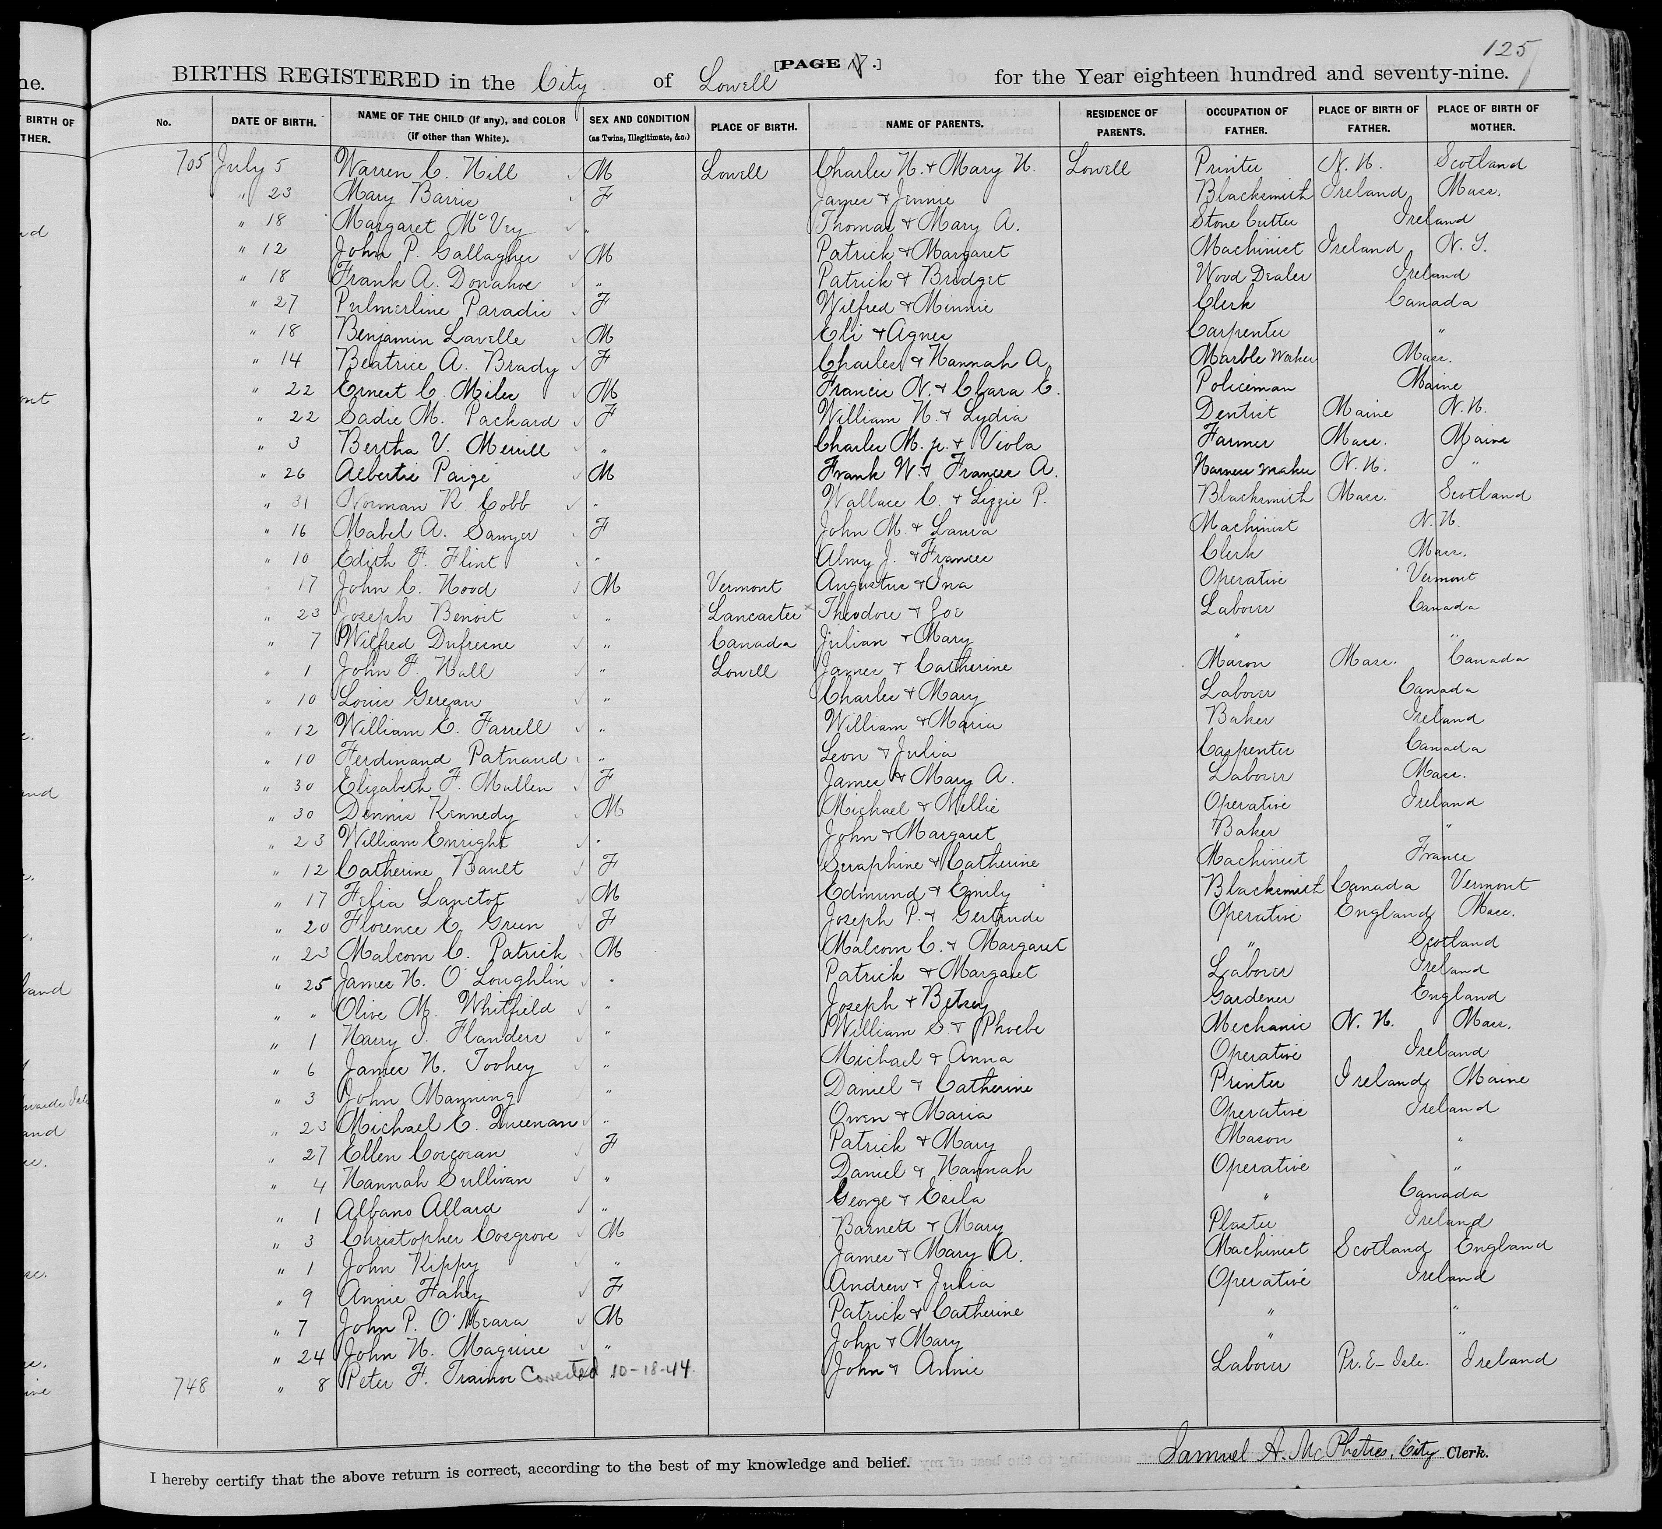 125
[PAGE .]
BIRTHS REGISTERED in the City of Lowell for the Year eighteen hundred and seventy-nine.
No. DATE OF BIRTH. NAME OF THE CHILD (if any), and COLOR (if other than White). SEX AND CONDITION (as Twins, Illegitimate, &c.) PLACE OF BIRTH. NAME OF PARENTS. RESIDENCE OF PARENTS. OCCUPATION OF FATHER. PLACE OF BIRTH OF FATHER. PLACE OF BIRTH OF MOTHER.
705 July 5 Warren C. Hill M Lowell Charles H. & Mary H. Lowell Printer N. H. Scotland
" 23 Mary Barrie F James & Jennie Blacksmith Ireland Mass.
" 18 Margaret McVey " Thomas & Mary A. Stone Cutter Ireland
" 12 John P. Gallagher M Patrick & Margaret Machinist Ireland N. Y.
" 18 Frank A. Donahoe " Patrick & Bridget Wood Dealer Ireland
" 27 Pulmerline Paradie F Wilfred & Minnie Clerk Canada
" 18 Benjamin Lavelle M Eli & Agnes Carpenter "
" 14 Beatrice A. Brady F Charles & Hannah A. Marble Worker Mass.
" 22 Ernest C. Miles M Francis N. & Clara E. Policeman Maine
" 22 Sadie M. Packard F William H. & Lydia Dentist Maine N. H.
" 3 Bertha V. Merrill " Charles M. jr. & Viola Farmer Mass. Maine
" 26 Albertie Paige M Frank W. & Frances A. Harness maker N. H. "
" 31 Norman K Cobb " Wallace C. & Lizzie P. Blacksmith Mass. Scotland
" 16 Mabel A. Sawyer F John M. & Laura Machinist N. H.
" 10 Edith F. Flint " Almy J. & Frances Clerk Mass.
" 17 John C. Hood M Vermont Augustus & Ina Operative Vermont
" 23 Joseph Benoit " Lancaster Theodore & Zoe Laborer Canada
" 7 Wilfred Dufresne " Canada Julian & Mary " "
" 1 John F. Hall " Lowell James & Catherine Mason Mass. Canada
" 10 Louis Gereau " Charles & Mary Laborer Canada
" 12 William E. Farrell " William & Maria Baker Ireland
" 10 Ferdinand Patnaud " Leon & Julia Carpenter Canada
" 30 Elizabeth F. Mullen F James & Mary A. Laborer Mass.
" 30 Dennis Kennedy M Michael & Nellie Operative Ireland
" 23 William Enright " John & Margaret Baker "
" 12 Catherine Bault F Seraphine & Catherine Machinist France
" 17 Felia Lanctot M Edmund & Emily Blacksmith Canada Vermont
" 20 Florence E. Green F Joseph P. & Gertrude Operative England Mass.
" 23 Malcom C. Patrick M Malcom C. & Margaret " Scotland
" 25 James H. O'Loughlin " Patrick & Margaret Laborer Ireland
" " Olive M. Whitfield " Joseph & Betsey Gardener England
" 1 Harry I. Flanders " William S & Phoebe Mechanic N. H. Mass.
" 6 James H. Toohey " Michael & Anna Operative Ireland
" 3 John Manning " Daniel & Catherine Printer Ireland Maine
" 23 Michael E. Queenan " Owen & Maria Operative Ireland
" 27 Ellen Corcoran F Patrick & Mary Mason "
" 4 Hannah Sullivan " Daniel & Hannah Operative "
" 1 Albano Allard " George & Exila " Canada
" 3 Christopher Cosgrove M Barnett & Mary Plaster Ireland
" 1 John Kippy " James & Mary A. Machinist Scotland England
" 9 Annie Fahey F Andrew & Julia Operative Ireland
" 7 John P. O'Meara M Patrick & Catherine " "
" 24 John H. Maguire " John & Mary " "
748 " 8 Peter F. Trainor Corrected 10-18-44. John & Annie Laborer Pr. E- Isle. Ireland
I hereby certify that the above return is correct, according to the best of my knowledge and belief. Samuel A. McPhetres, City Clerk.